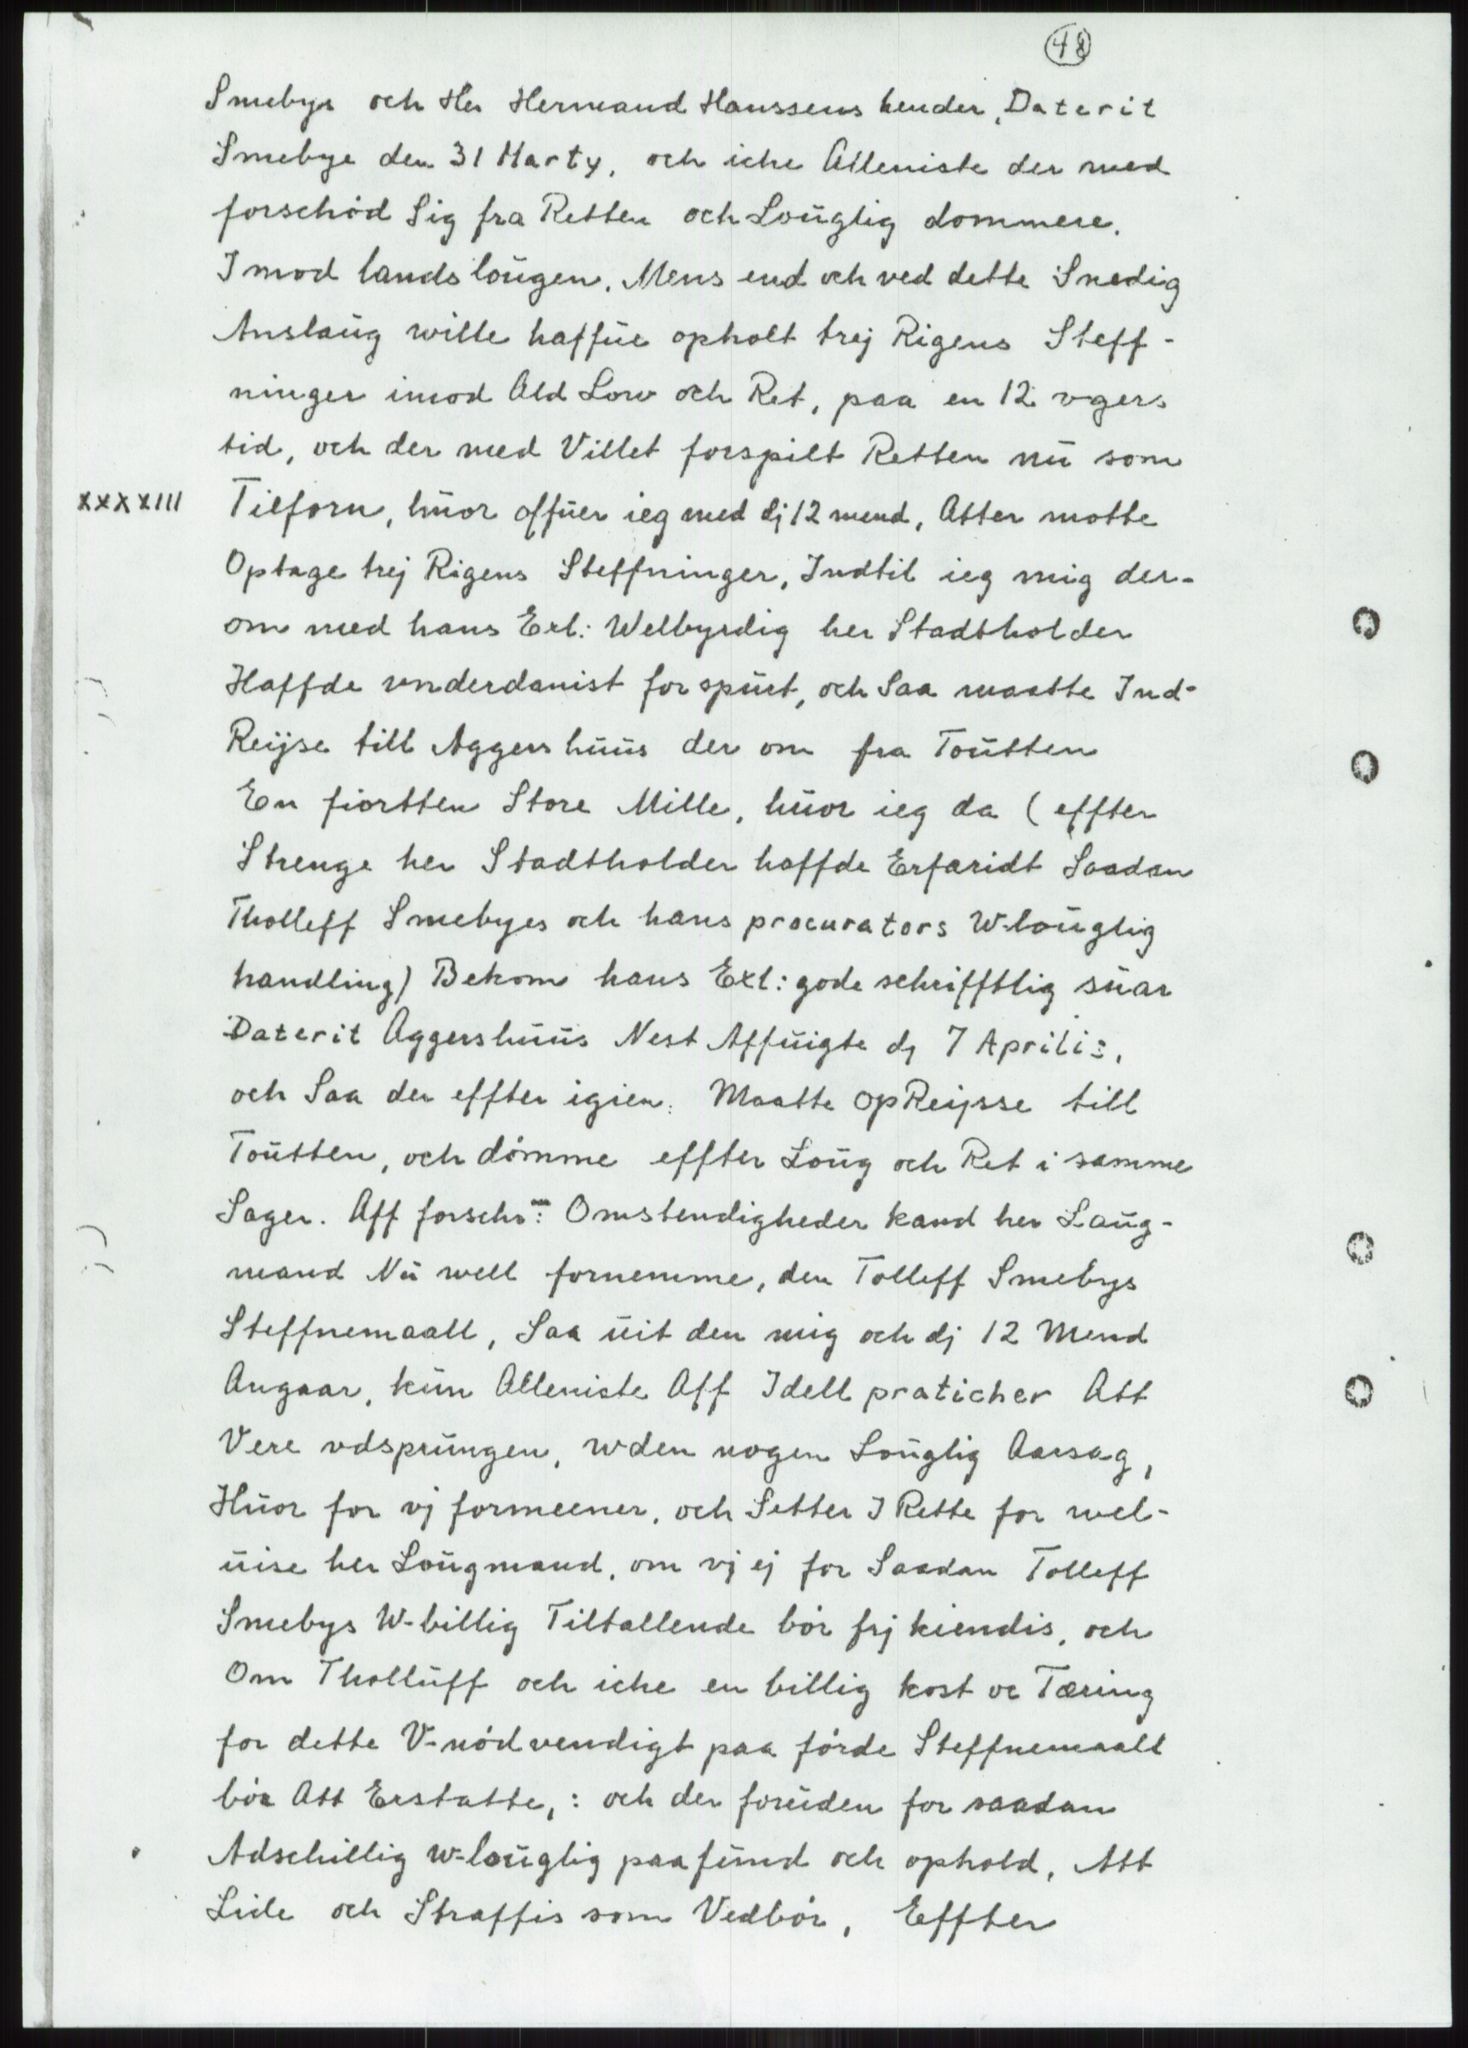 48
Smebys och Her Hermand Hanssens hender, Daterit
Smebye den 31 Marty, och iche Alleniste der med
forschød Sig fra Retten och Loŭglig dommere.
Imod lands loŭgen. Mens end och ved dette Snedig
Anslaŭg wille haffŭe opholt trej Rigens Steff-
ninger imod Ald Low och Ret, paa en 12 vgers
tid, och der med Villet forspilt Retten nŭ som
XXXXIII Tilforn, hŭor offŭer ieg med dj 12 mend, Atter motte
Optage trej Rigens Steffninger, Indtil ieg mig der-
om med hans Exl: Welbyrdig her Stadtholder
Haffde vnderdanist forspŭrt, och Saa maatte Ind-
Reijse till Aggershŭŭs der om fra Toŭtten
En fiortten Store Mille, hŭor ieg da (effter
Strenge her Stadtholder haffde Erfaridt Saadan
Tholleff Smebyes och hans procurators W-loŭglig
handling) Bekom hans Exl: gode schrifftlig sŭar
Daterit Aggershŭŭs Nest Affŭigte dj 7 Aprilis,
och Saa der effter igien. Maatte opReijsse till
Toŭtten, och dømme effter Loŭg och Ret i samme
Sager. Aff forschr: Omstendigheder kand her Laŭg-
mand Nŭ well fornemme, den Tolleff Smebys
Steffnemaall, Saa ŭit den mig och dj 12 Mend
Angaar, kŭn Alleniste Aff Idell praticher Att
Vere vdsprŭngen, wden nogen Loŭglig Aarsag,
Hŭor for vj formeener, och Setter I Rette for wel-
ŭise her Loŭgmand, om vj ej for Saadan Tolleff
Smebys W-billig Tiltallende bør frj kiendis, och
Om Tholluff och iche en billig kost oc Tæring
for dette V-nødvendigt paa førde Steffnemaall
bør Att Erstatte,: och der forŭden for saadan
Adschillig w-loŭglig paafŭnd och ophold, Att
Lide och Straffis som Vedbør, Effter